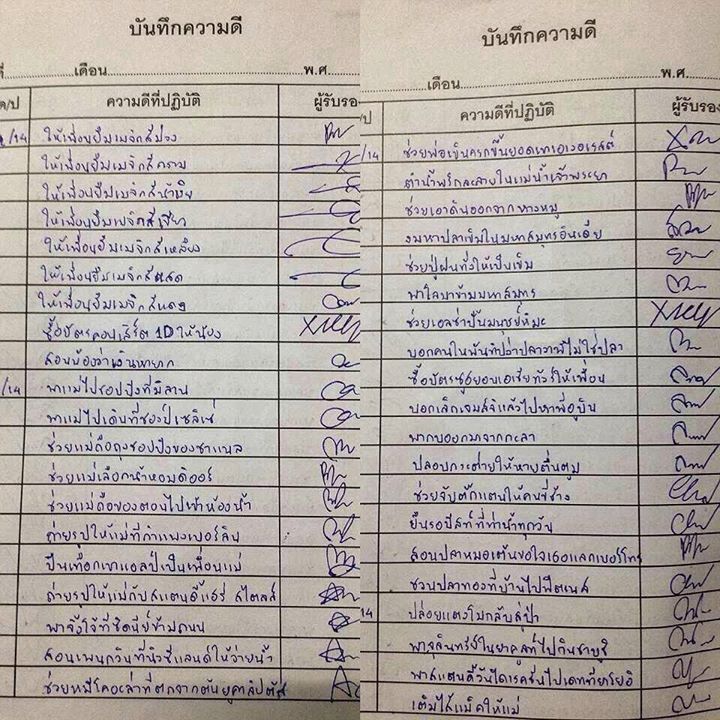 บันทึกความดี
เดือน พ.ศ.
ด/ป ความดีที่ปฏิบัติ ผู้รับรอง
/14 ให้เพื่อนยืมเมจิกสีม่วง
ให้เพื่อนยืมเมจิกสีคราม
ให้เพื่อนยืมเมจิกสีน้ำเงิน
ให้เพื่อนยืมเมจิกสีเขียว
ให้เพื่อนยืมเมจิกสีเหลือง
ให้เพื่อนยืมเมจิกสีแสด
ให้เพื่อนยืมเมจิกสีแดง
ซื้อบัตรคอนเสิร์ต 1D ให้น้อง
สอนน้องว่าเงินหายาก
/14 พาแม่ไปชอปปิ้งที่มิลาน
พาแม่ไปเดินที่ชองป์เซลิเซ่
ช่วยแม่ถือถุงชอปปิ้งของชาแนล
ช่วยแม่เลือกน้ำหอมดิออร์
ช่วยแม่ถือของตอนไปเข้าห้องน้ำ
ถ่ายรูปให้แม่ที่กำแพงเบอร์ลิน
ปีนเทือกเขาแอลป์เป็นเพื่อนแม่
ถ่ายรูปให้แม่กับสแตนดี้แฮร์รี่ สไตลส์
พาจิงโจ้ที่ซิดนีย์ข้ามถนน
สอนเพนกวินที่นิวซีแลนด์ให้ว่ายน้ำ
ช่วยหมีโคอะล่าที่ตกจากต้นยูคาลิปตัส
บันทึกความดี
เดือน พ.ศ.
/ป ความดีที่ปฏิบัติ ผู้รับรอง
/14 ช่วยพ่อเข็นครกขึ้นยอดเขาเอเวอเรสต์
ตำน้ำพริกละลายในแม่น้ำเจ้าพระยา
ช่วยเอาดินออกจากหางหมู
งมหาปลาเข็มในมหาสมุทรอินเดีย
ช่วยปู่ฝนทั่งให้เป็นเข็ม
พาโลมาข้ามมหาสมุทร
ช่วยเอลซ่าปั้นมนุษย์หิมะ
บอกคนในพันทิปว่าปลาวาฬไม่ใช่ปลา
ซื้อบัตรซูจูยอนเอเชียทัวร์ให้เพื่อน
บอกเล็กเจมส์จิแล้วไปหาพี่อูบิน
พากบออกมาจากกะลา
ปลอบกระต่ายให้หายตื่นตูม
ช่วยจับตั๊กแตนให้คนขี่ช้าง
ยืนรอปีสท์ที่ท่าน้ำทุกวัน
สอนปลาหมอเต้นขอใจเธอแลกเบอร์โทร
ชวนปลาทองที่บ้านไปฟิตเนส
/14 ปล่อยแตงโมกลับสู่ป่า
พาจุลินทรีย์ในยาคูลท์ไปกินชาบูชิ
พาสแตนดี้วันไดเรคชั่นไปเดทที่ยาโยอิ
เติมไส้แม็คให้แม่